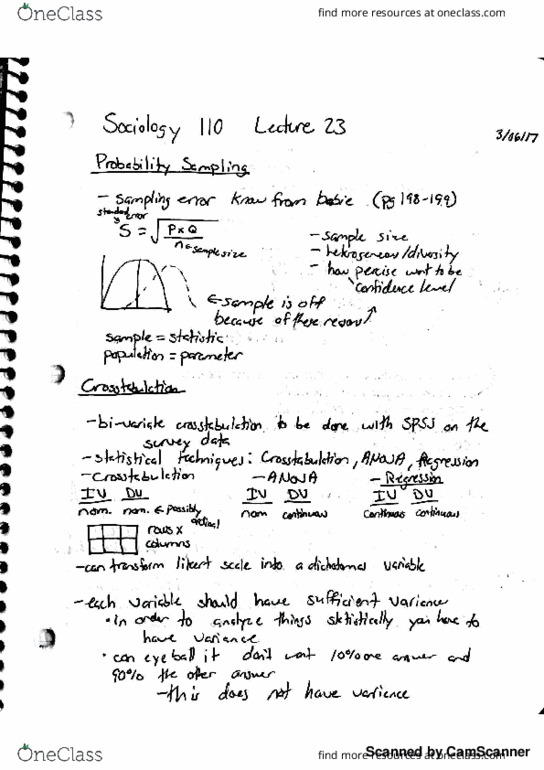 OneClass
find more resources at oneclass.com
Sociology 110 Lecture 23
3/06/17
Probability Sampling
- sampling error know from babie (pg 198-199)
standard error
S = √ PxQ / n ← sample size
- sample size
- hetrogeneous/diversity
- how percise want to be
confidence level
← sample is off
because of these reasons
sample = statistic
population = parameter
Crosstabulation
- bi-variate crosstabulation to be done with SPSS on the
survey data
- statistical techniques: Crosstabulation, ANOVA, Regression
- Crosstabulation - ANOVA - Regression
IV DV IV DV IV DV
nom. nom. ← possibly ordinal nom continuous continuous continuous
rows x
columns
- can transform likert scale into a dichotomous variable
- each variable should have sufficient varience
• in order to analyze things statistically you have to
have varience
• can eyeball it don't want 10% one answer and
90% the other answer
- this does not have varience
OneClass
find more resources at oneclass.com
Scanned by CamScanner